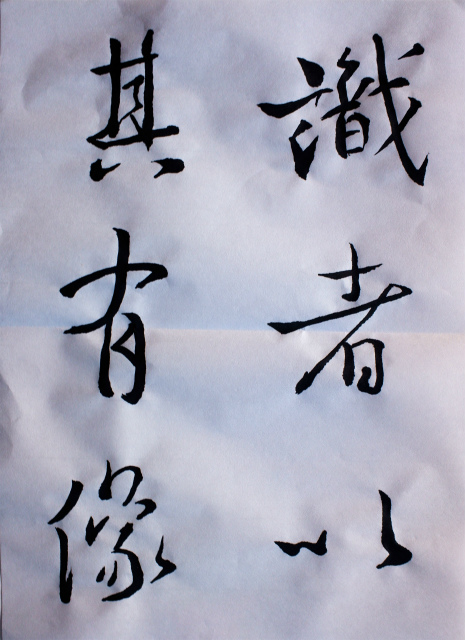 識者以
其有像